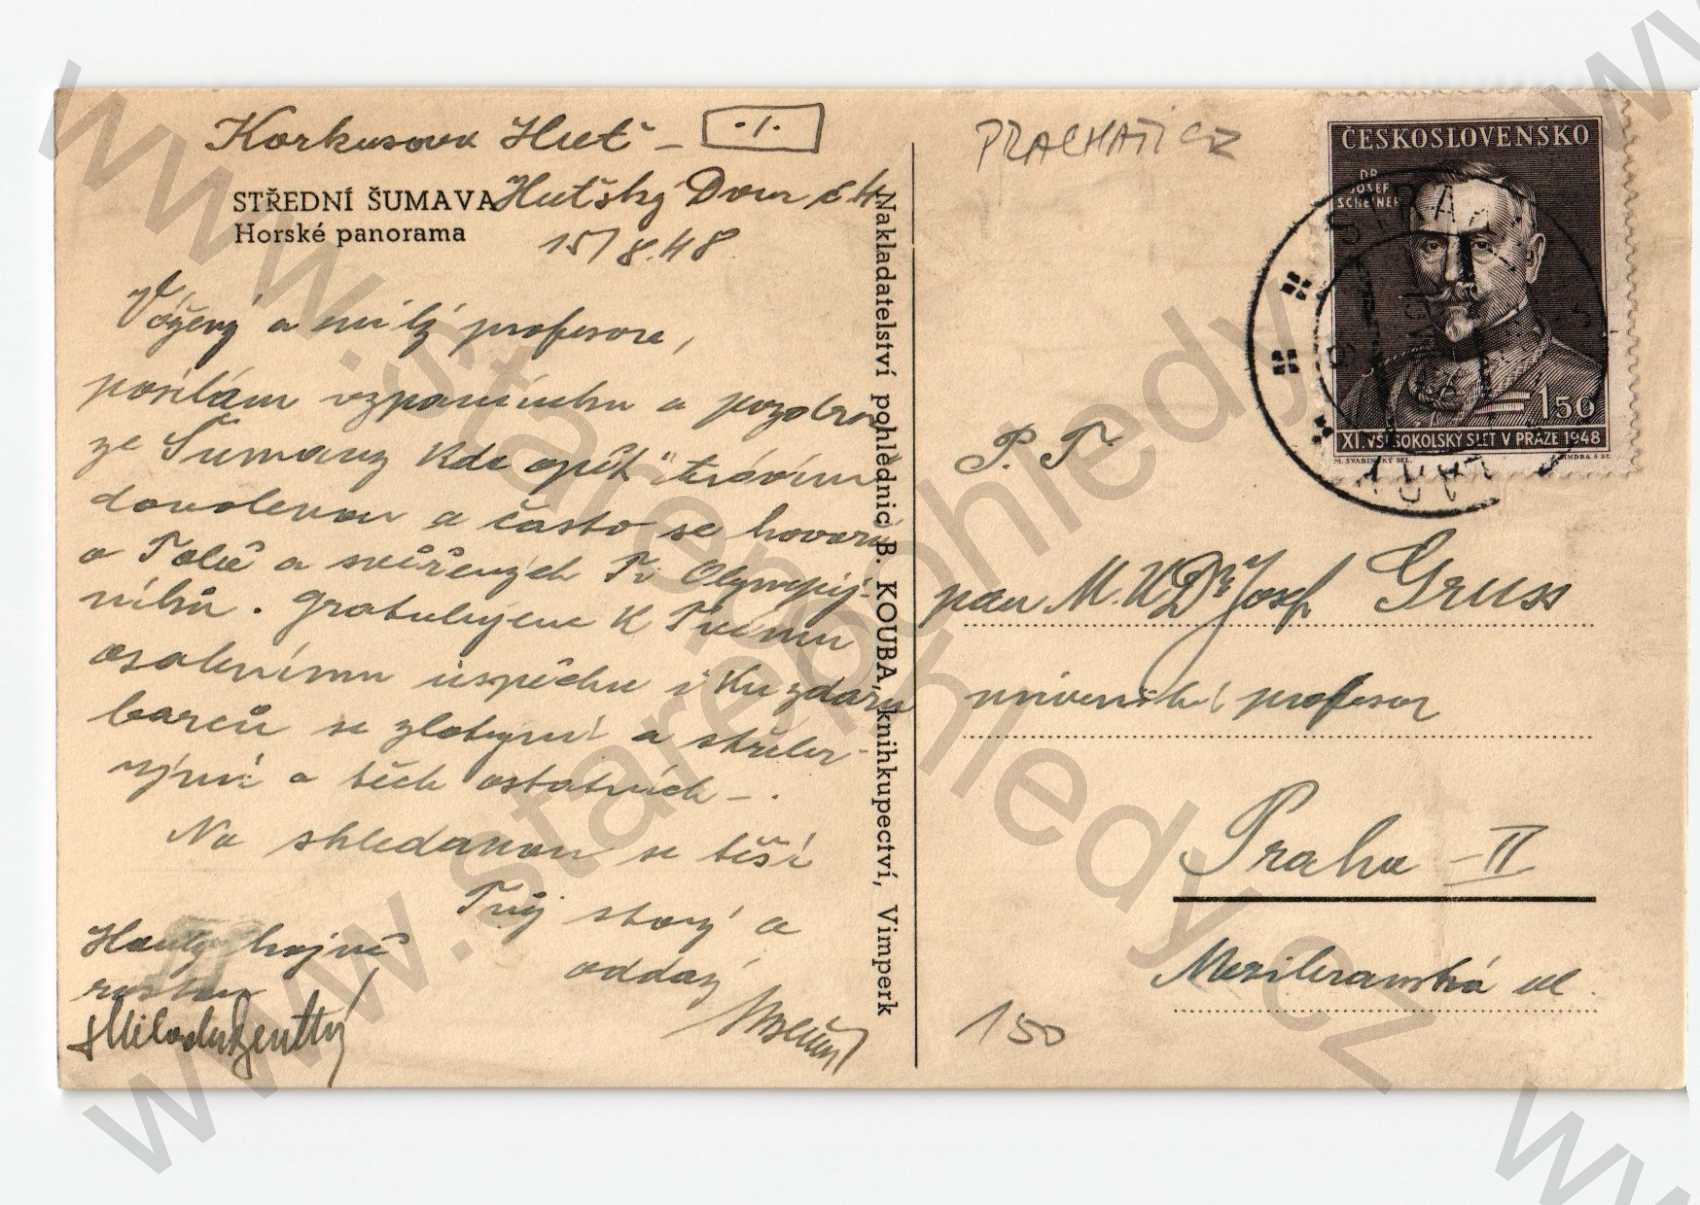 Korkusova Huť - ·/·
STŘEDNÍ ŠUMAVA Hutský Dvur č 4
Horské panorama 15/8.48
Vážený a milý profesore,
posílám vzpomínku a pozdrav
ze Šumavy kde opět trávím
dovolenou a často se hovoří
o Tobě a svěřených Ti Olympij-
níků. Gratulujeme k Tvému
osobnímu úspěchu i ku zdaru
borců se zlatými a stříbr-
nými a těch ostatních -.
Na shledanou se těší
Tvůj starý a
oddaný
hojně
Nakladatelství pohlednic B. KOUBA, knihkupectví, Vimperk
PRACHATICE
ČESKOSLOVENSKO
DR.
JOSEF
SCHEINER
1·50
XI. VŠESOKOLSKÝ SLET V PRAZE 1948
M. ŠVABINSKÝ DEL.
P. T.
pan M.UDr Josef Gruss
universitní profesor
Praha - II
Mezibranská ul.
150
www.starepohledy.cz
www.starepohledy.cz